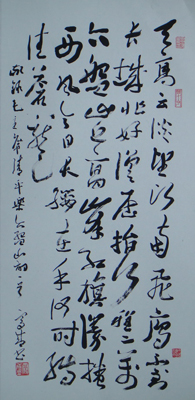 天高云淡望断南飞雁不到
长城非好汉屈指行程二万
六盘山上高峰红旗漫卷
西风今日长缨在手何时缚
住苍龙
录毛主席清平乐六盘山词一首